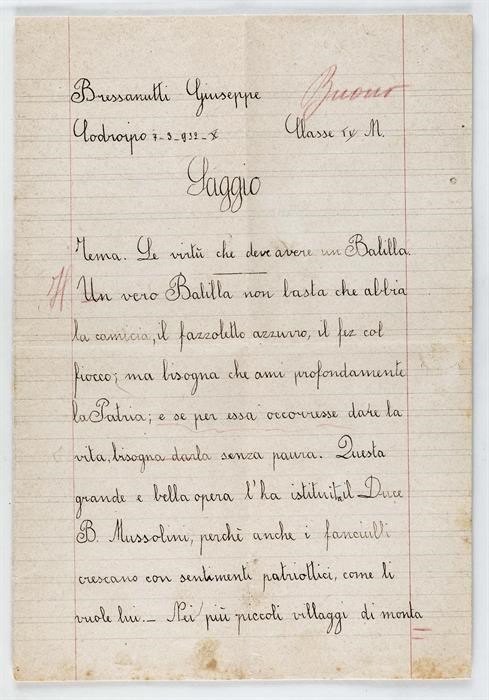 Bressanutti Giuseppe
Buono
Codroipo 7-3-932-X Classe IV M.
Saggio
Tema. Le virtù che deve avere un Balilla.
Un vero Balilla non basta che abbia
la camicia, il fazzoletto azzurro, il fez col
fiocco; ma bisogna che ami profondamente
la Patria; e se per essa occorresse dare la
vita, bisogna darla senza paura. Questa
grande e bella opera l'ha istituita il Duce
B. Mussolini, perchè anche i fanciulli
crescano con sentimenti patriottici, come li
vuole lui.- Nei più piccoli villaggi di monta